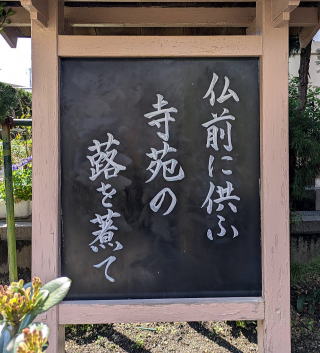 仏前に供ふ
寺苑の
蕗を煮て